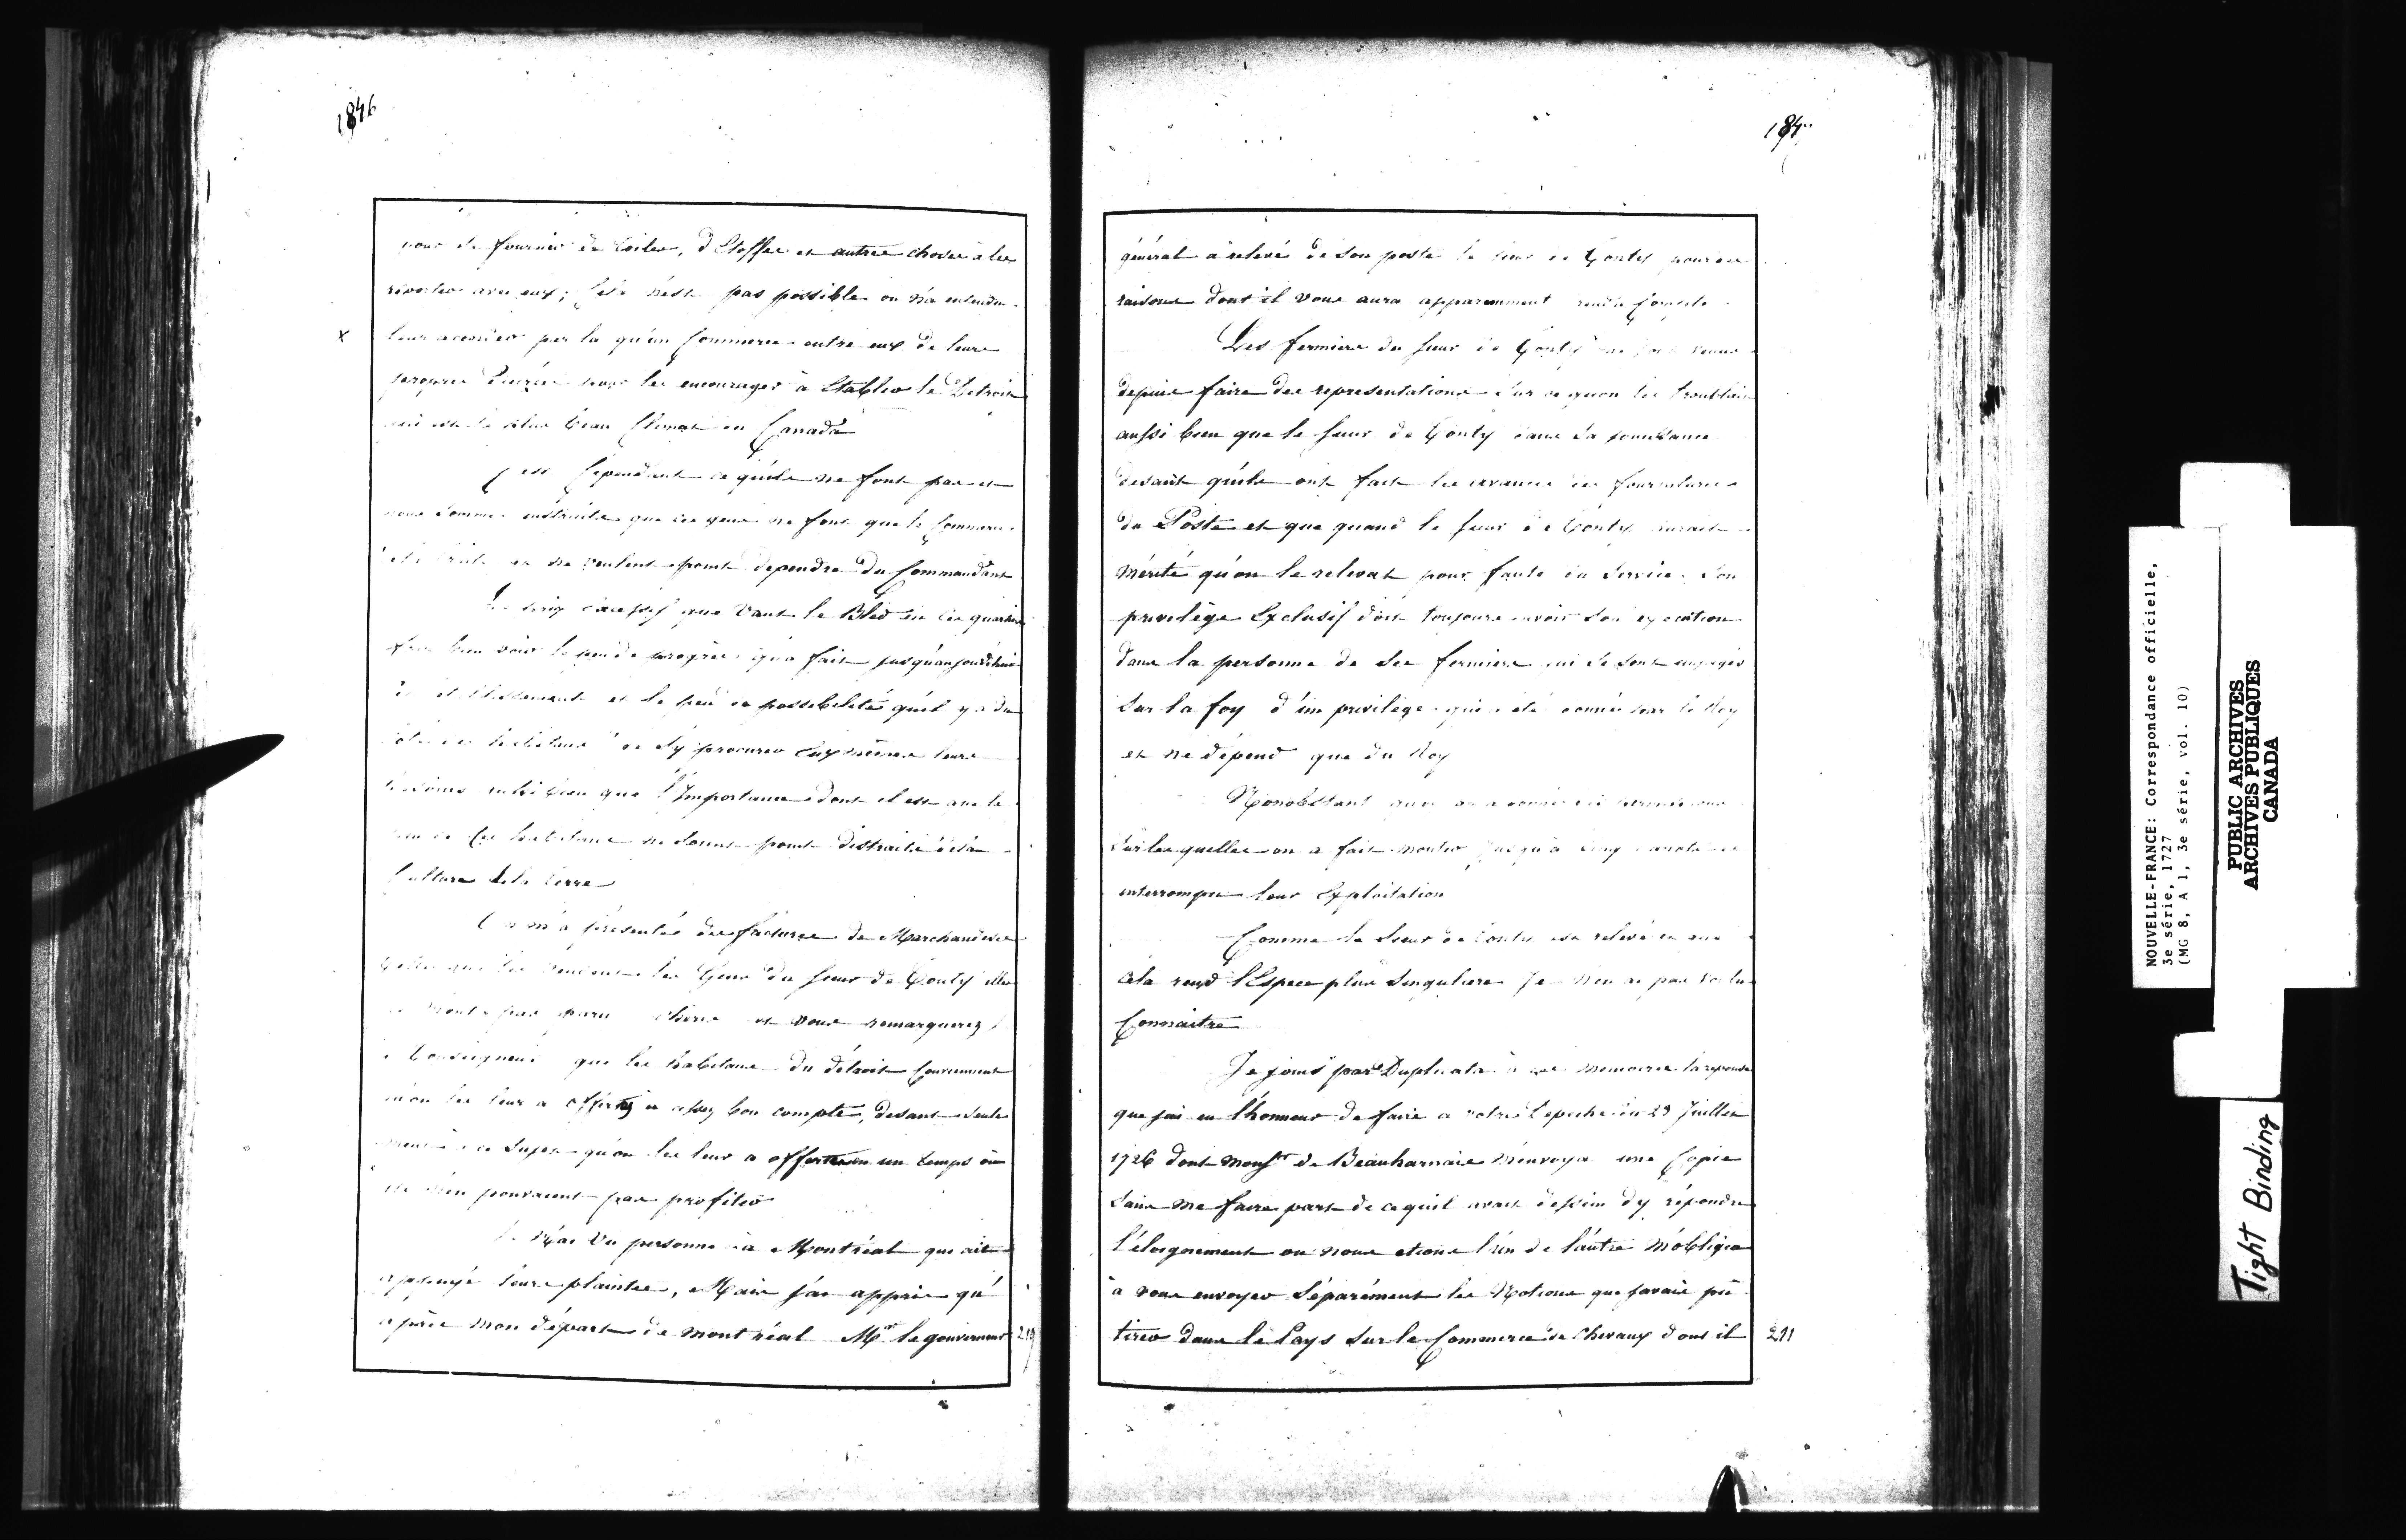 1846
de fournir de toiles, d'Etoffes et autres choses a les
avec eux; Cela n'est pas possible on n'a entendu
leur accorder par la qu'un Commerce entre eux de leurs
propres denrées pour les encourager à Etablir le Detroit
qui est le plus beau Climat en Canada
C'est Cependant ce qu'ils ne font pas et
nous sommes instruits que ces gens ne font que le Commerce
et ne veulent point dependre du Commandant
Le prix excessif que vaut le Bled en ces quartiers
fait bien voir le peu de progrès qu'a fait jusqu'aujourd'huy
cet Etablissement et le peu de possibilité qu'il y a du
des habitans de s'y procurer Eux mêmes leurs
besoins aussi bien que l'Importance dont il est que le
peu de ces habitans ne soient point distraits de la
Culture de la terre
On m'a présentés des factures de Marchandises
que les vendent les Gens du Sieur de Tonty elles
ne m'ont pas paru chères et vous remarquerez
Monseigneur que les habitans du détroit Conviennent
qu'on les leur a offertes a assez bon compte, disant seule
ment a ce Sujet qu'on les leur a offertes en un temps où
ils n'en pouvaient pas profiter
Je n'ai Vu personne a Montréal qui ait
appuyé leurs plaintes, Mais j'ai appris qu'
après mon départ de Montréal Mr. le gouverneur
210
184
général a relevé de son poste le sieur de Tonty pour des
raisons dont il vous aura apparemment rendu Compte
Les fermiers du sieur de Tonty me sont venus
depuis faire des representations sur ce qu'on les troublait
aussi bien que le sieur de Tonty dans sa jouissance
disant qu'ils ont fait les avances des fournitures
du Poste et que quand le sieur de Tonty aurait
mérité qu'on le relevat pour faute du Service Son
privilège Exclusif doit toujours avoir son exécution
dans la personne de ses fermiers qui se sont engagés
sur la foy d'un privilège qui a été donné par le Roy
et ne dépend que du Roy
Nonobstant quoi on a donné des permissions
sur lesquelles on a fait monter jusqu'à cinq canots et
interrompu leur Exploitation
Comme le Sieur de Tonty est relevé et que
cela rend l'Espece plus singuliere Je n'en ai pas voulu
Connaitre
Je joins par Duplicata à ce memoire la reponse
que j'ai eu l'honneur de faire a votre Depeche du 23 Juillet
1726 dont Monsr. de Beauharnais m'envoya une Copie
sans me faire part de ce quil avait dessein d'y répondre
l'éloignement ou nous etions l'un de l'autre m'obligea
à vous envoyer séparément les Notions que j'avais pû
tirer dans le Pays sur le Commerce de Chevaux dont il
211
NOUVELLE-FRANCE: Correspondance officielle,
3e série, 1727
(MG 8, A 1, 3e série, vol. 10)
PUBLIC ARCHIVES
ARCHIVES PUBLIQUES
CANADA
Tight Binding